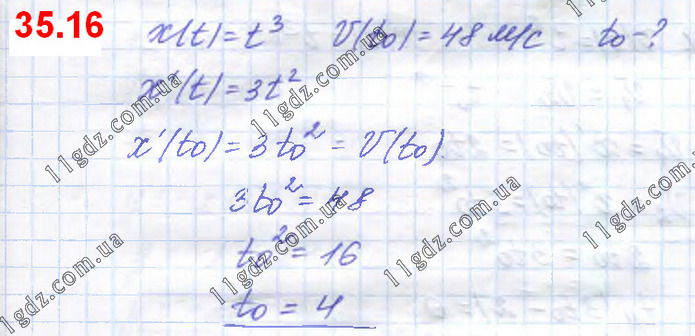 35.16 x(t)=t³ V(t₀)=48 м/с t₀-?
x'(t)=3t²
x'(t₀)=3t₀²=V(t₀)
3t₀²=48
t₀²=16
t₀=4
11gdz.com.ua
11gdz.com.ua
11gdz.com.ua
11gdz.com.ua
11gdz.com.ua
11gdz.com.ua